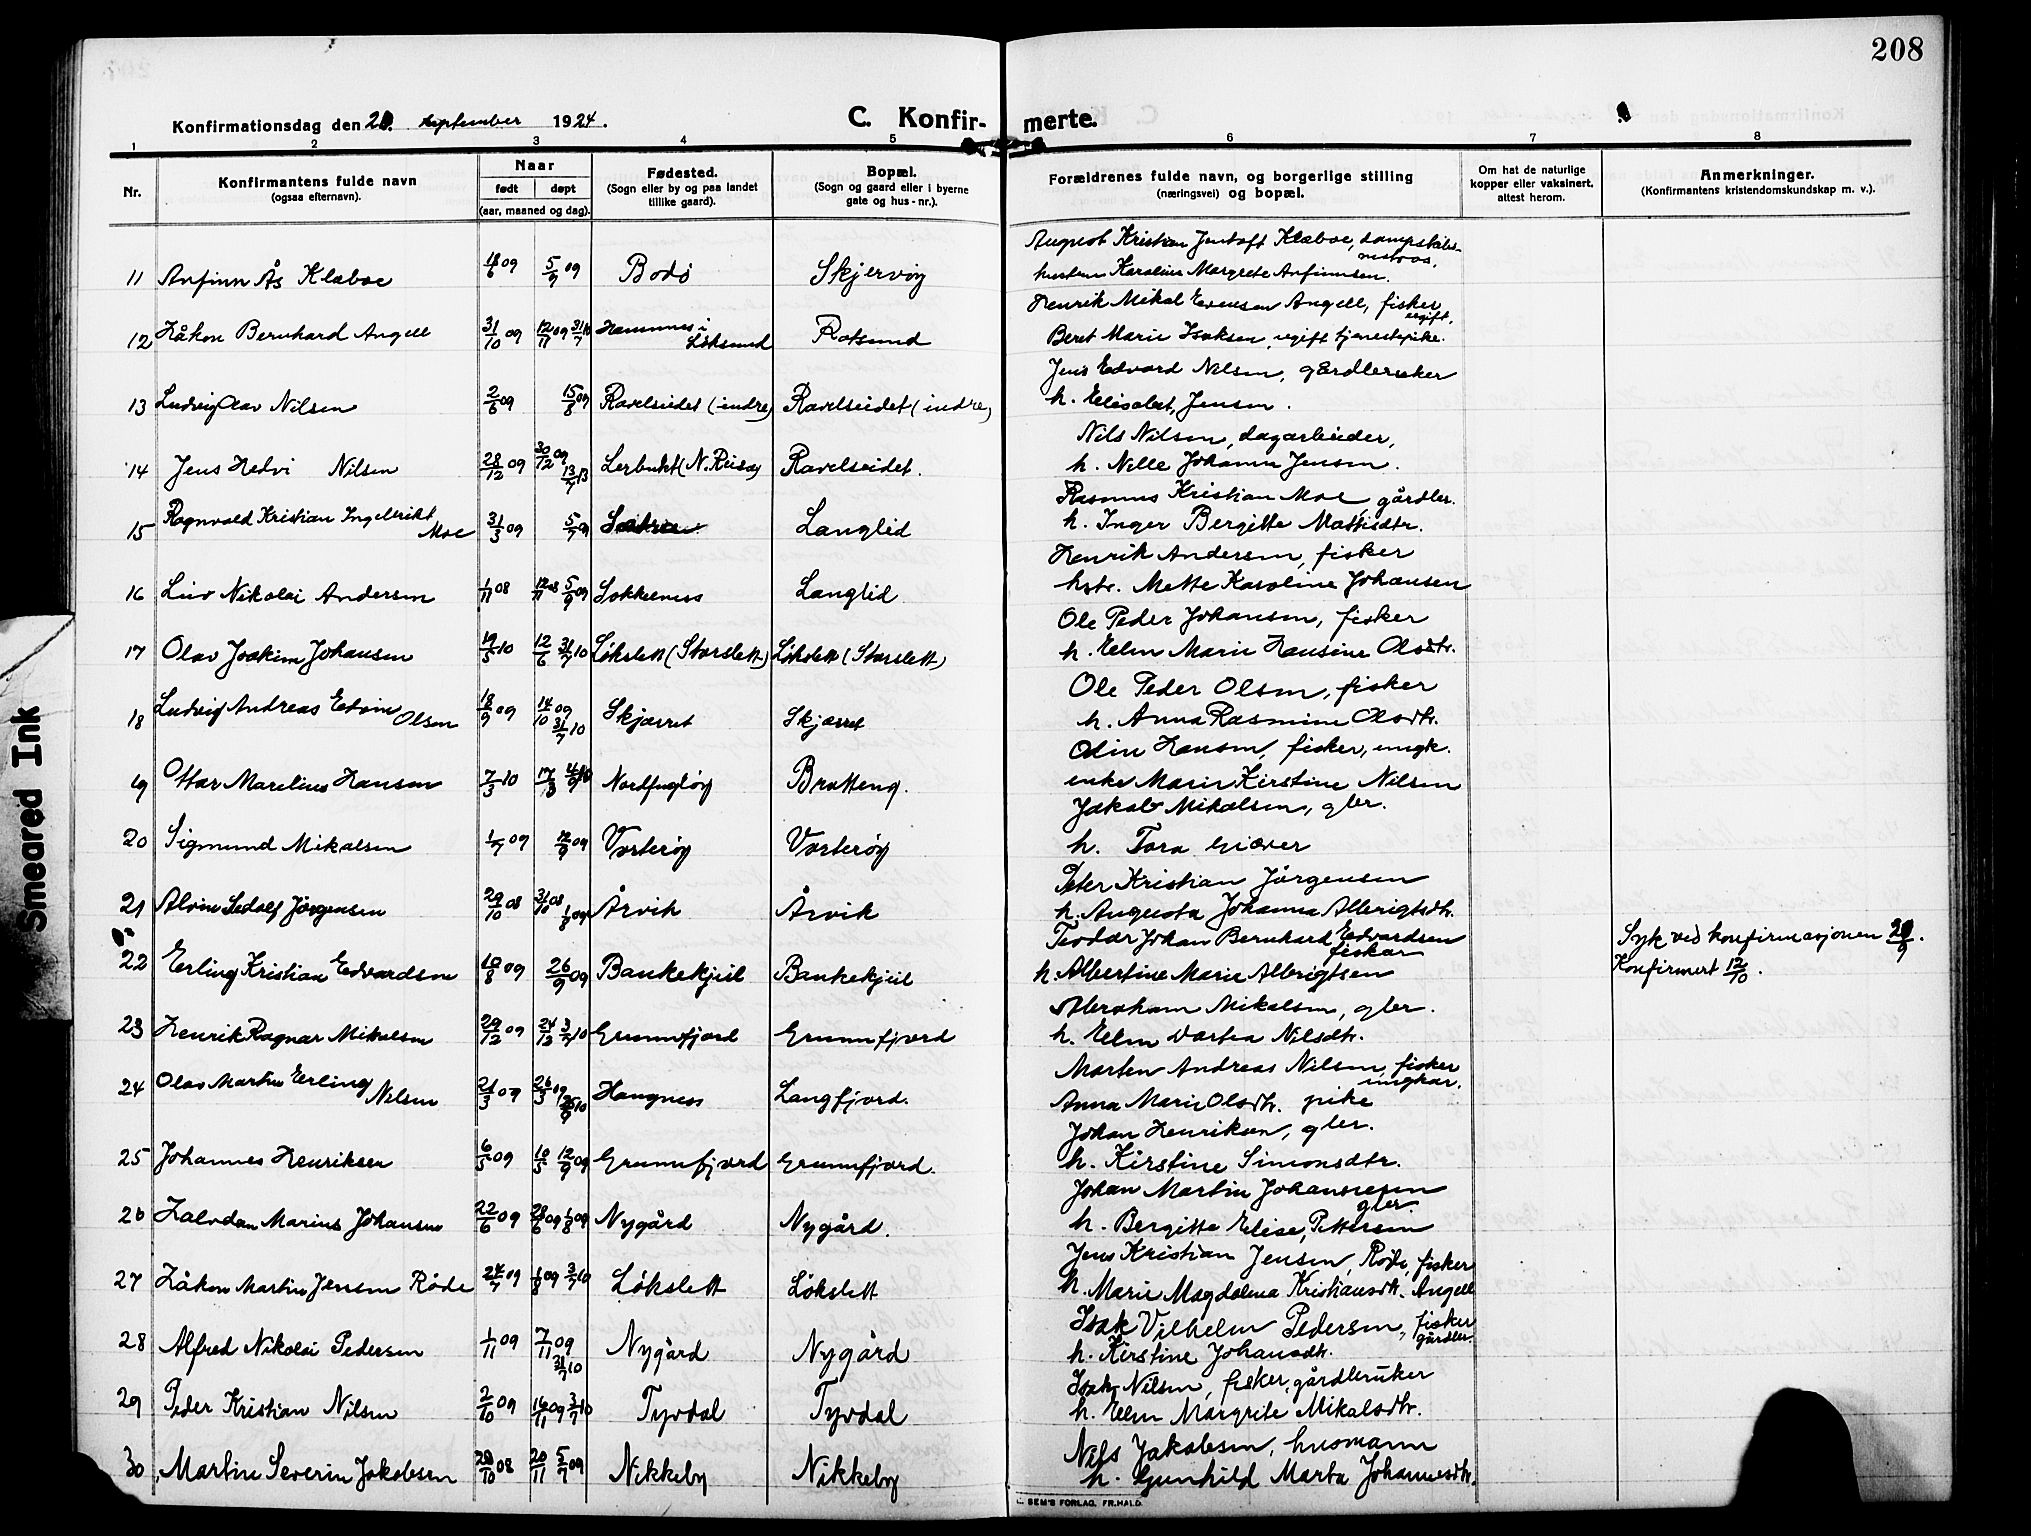 208
Konfirmationsdag den 20. september 1924.
C. Konfirmerte.
1 2 3 4 5 6 7 8
Nr.
Konfirmantens fulde navn
(ogsaa efternavn).
Naar
født døpt
(aar, maaned og dag).
Fødested.
(Sogn eller by og paa landet
tillike gaard).
Bopæl.
(Sogn og gaard eller i byerne
gate og hus-nr.).
Forældrenes fulde navn, og borgerlige stilling
(næringsvei) og bopæl.
Om hat de naturlige
kopper eller vaksinert,
attest herom.
Anmerkninger.
(Konfirmantens kristendomskundskap m. v.).
August Kristian Jentoft Klæboe,
11 Anfinn Ås Klæboe 18/6 09 5/9 09 Bodø Skjervøy hustru Karoline Margrete Anfinnsen.
Henrik Mikal Evensen Angell, fisker, ugift.
12 Håkon Bernhard Angell 31/10 09 12/11 09 31/7 10 Hamnnes i Løksund Rotsund Beret Marie Isaksen, ugift tjenestepike.
Jens Edvard Nilsen, gårdbruker
13 Ludvig Olav Nilsen 2/6 09 15/8 09 Ravelseidet (indre) Ravelseidet (indre) h. Elisabet, Jensen.
Nils Nilsen, dagarbeider,
14 Jens Hedvi Nilsen 28/12 09 30/12 09 13/7 13 Lerbukt (N. Reisa) Ravelseidet. h. Nelle Johanna Jensen.
Rasmus Kristian Moe, gårdbr.
15 Ragnvald Kristian Ingebrikt Moe 31/3 09 5/7 09 Langlid h. Inger Bergitte Mattisdtr.
Henrik Andersen, fisker
16 Liv Nikolai Andersen 1/11 08 12/11 08 5/9 09 Lokkeness Langlid hstr. Mette Karoline Johansen
Ole Peder Johansen, fisker
17 Olav Joakim Johansen 19/5 10 12/6 31/7 10 Løkslett (Storslett) Løkslett (Storslett) h. Elen Marie Hansine Olsdtr.
Ole Peder Olsen, fisker
18 Ludvig Andreas Edvin Olsen 18/9 09 14/10 09 31/7 10 Skjærret Skjærret h. Anna Rasmine Olsdtr.
Odin Hansen, fisker, ungk.
19 Ottar Marelius Hansen 7/3 10 17/3 4/9 10 Nordfugløy Bratteng. enke Marie Kirstine Nilsen
Jakob Mikalsen, gbr.
20 Sigmund Mikalsen 1/7 09 12/9 09 Vorterøy Vorterøy h. Tora Giæver
Peter Kristian Jørgensen
21 Alvin Sedolf Jørgensen 29/10 08 31/10 08 1/8 09 Årvik Årvik h. Augusta Johanna Albrigtsdtr.
Teodor Johan Bernhard Edvardsen fisker
22 Erling Kristian Edvardsen 10/8 09 26/9 09 Bankekjeil Bankekjeil h. Albertine Marie Albrigtsen
Syk ved konfirmasjonen 20/9.
Konfirmert 12/10.
Abraham Mikalsen, gbr.
23 Henrik Ragnar Mikalsen 29/12 09 24/2 3/7 10 Grunnfjord Grunnfjord h. Elen Dortea Nilsdtr.
Morten Andreas Nilsen, fisker ungkar.
24 Olav Martin Erling Nilsen 21/3 09 26/3 09 25/9 10 Haugnes Langfjord. Anna Marie Olsdtr. pike
Johan Henriksen, gbr.
25 Johannes Henriksen 6/5 09 10/5 12/9 09 Grunnfjord Grunnfjord. h. Kirstine Simonsdtr.
Johan Martin Johannesen gbr.
26 Halvdan Marius Johansen 22/6 09 28/6 09 1/8 09 Nygård Nygård. h. Bergitte Elise, Pettersen
Jens Kristian Jensen, Røde, fisker
27 Håkon Martin Jensen Røde 24/7 09 1/8 09 3/7 10 Løkslett Løkslett h. Marie Magdalena Kristiansdtr. Angell
Isak Vilhelm Pedersen, fisker gårdbr.
28 Alfred Nikolai Pedersen 1/11 09 7/11 09 31/7 10 Nygård Nygård h. Kirstine Johansdtr.
Isak Nilsen, fisker, gårdbruker
29 Peder Kristian Nilsen 2/10 09 16/11 09 3/7 10 Tyvdal Tyvdal h. Elen Margrete Mikalsdtr.
Nils Jakobsen, husmann
30 Martin Severin Jakobsen 20/10 08 20/11 5/7 09 Nikkeby Nikkeby h. Gunhild Marta Johannesdtr.
SEM'S FORLAG, FR.HALD.
Smeared Ink